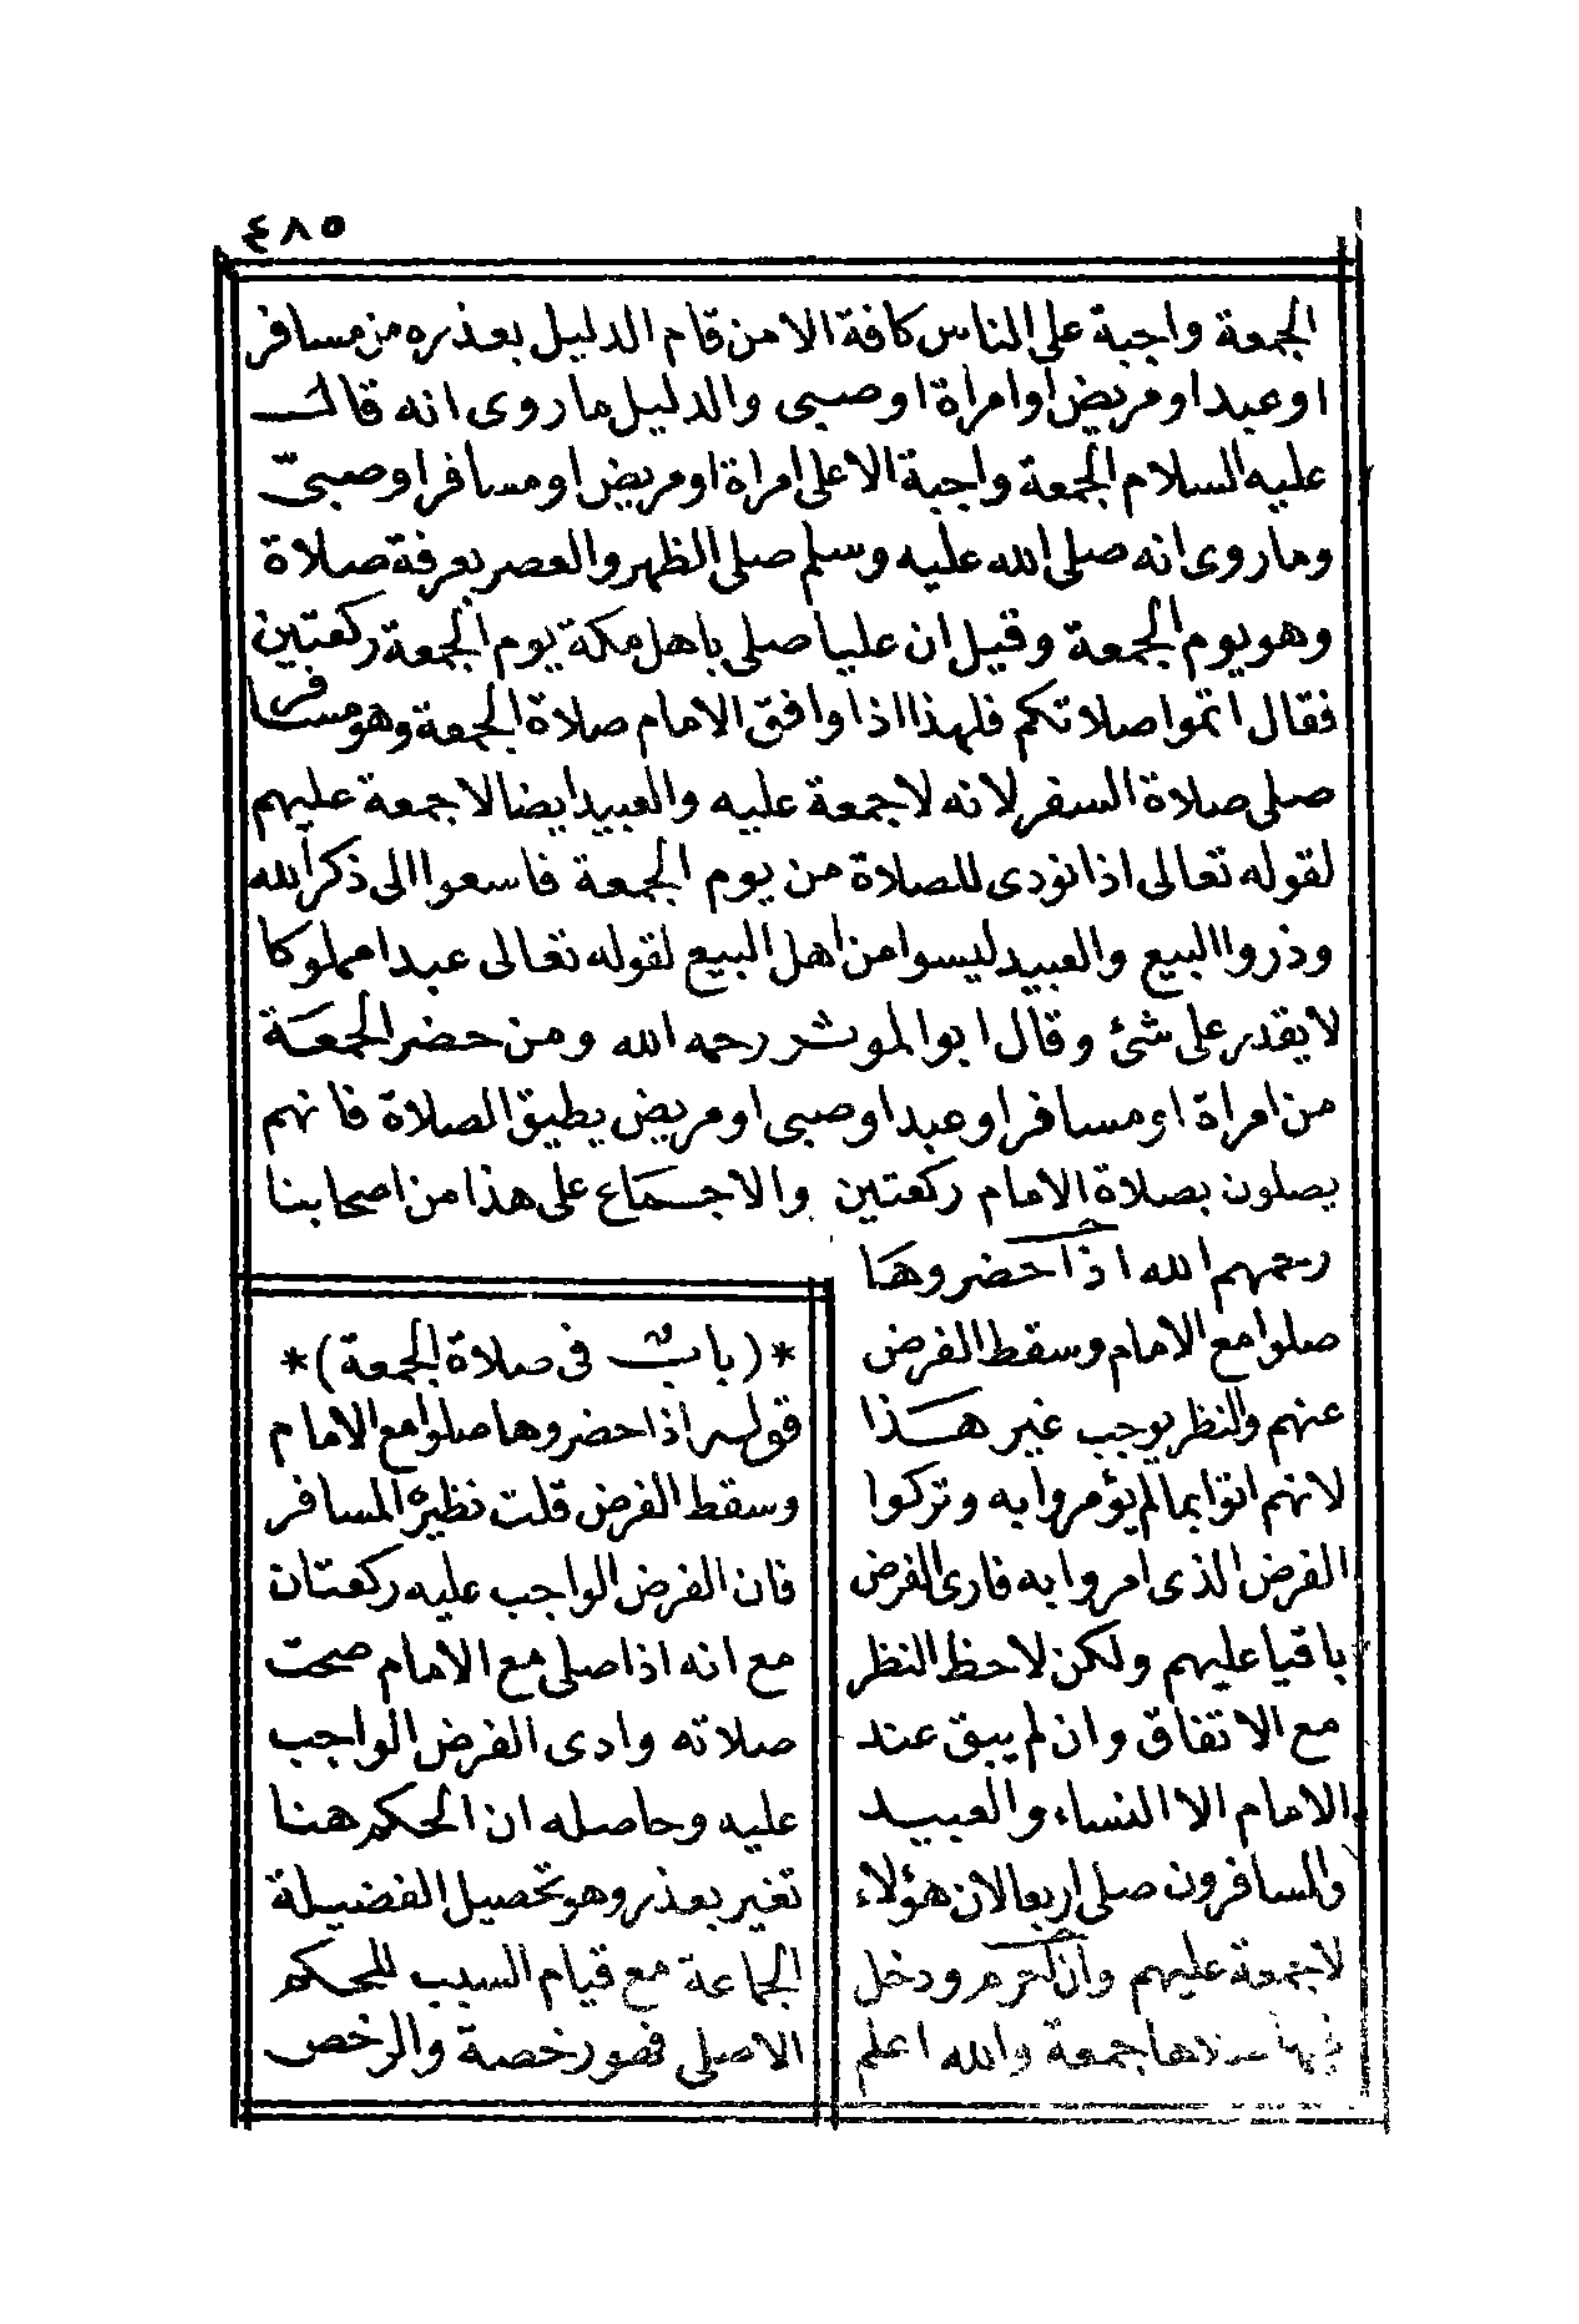 ٤٨٥
الجمعة واجبة على الناس كافة الا من قام الدليل بعذره من مسافر
او عبد او مريض او امراة او صبى والدليل ما روى انه قال
عليه السلام الجمعة واجبة الا على امراة او مريض او مسافر او صبىّ
وما روى انه صلى الله عليه وسلم صلى الظهر والعصر بعرفة صلاة
وهو يوم الجمعة وقيل ان عليا صلى باهل مكة يوم الجمعة ركعتين
فقال اتموا صلاتكم فلهذا اذا وافق الامام صلاة الجمعة وهو مسافر
صلى صلاة السفر لانه لا جمعة عليه والعبيد ايضا لا جمعة عليهم
لقوله تعالى اذا نودى للصلاة من يوم الجمعة فاسعوا الى ذكر الله
وذروا البيع والعبيد ليسوا من اهل البيع لقوله تعالى عبدا مملوكا
لا يقدر على شئ وقال ابو الموثر رحمه الله ومن حضر الجمعة
من امراة او مسافر او عبد او صبى او مريض يطيق الصلاة فانهم
يصلون بصلاة الامام ركعتين والاجماع على هذا من اصحابنا
رحمهم الله اذا حضروها
صلوا مع الامام وسقط الفرض
عنهم والنظر يوجب غير هذا
لانهم اتوا بما لم يؤمروا به وتركوا
الفرض الذى امروا به فارى الفرض
باقيا عليهم ولكن لا حظ النظر
مع الاتفاق وان لم يبق عند
الامام الا النساء والعبيد
والمسافرون صلى اربعا لان هؤلاء
لا جمعة عليهم وان احرم ودخل
جمعة والله اعلم
*(باب فى صلاة الجمعة)*
قوله اذا حضروها صلوا مع الامام
وسقط الفرض قلت نظيره المسافر
فان الفرض الواجب عليه ركعتان
مع انه اذا صلى مع الامام صحت
صلاته وادى الفرض الواجب
عليه وحاصله ان الحكم هنا
تغير بعذر وهو تحصيل الفضيلة
الجماعة مع قيام السبب للحكم
الاصلى فهو رخصة والرخص